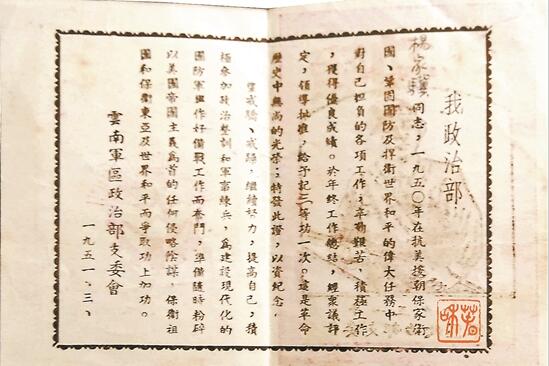 我政治部
楊家驥同志，一九五〇年在抗美援朝保家衛
國、鞏固國防及捍衛世界和平的偉大任務中
對自己担負的各項工作，辛勤艱苦，積極工作
，獲得優良成績。於年終工作總結，經衆議評
定，領導批准，給予記三等功一次。這是革命
歷史中無尚的光榮；特發此證，以資紀念。
望戒驕、戒躁，繼續努力，提高自己，積
極參加政治整訓和軍事練兵，為建設現代化的
國防軍與作好備戰工作而奮鬥，準備隨時粉碎
以美國帝國主義為首的任何侵略陰謀，保衛祖
國和保衛東亞及世界和平而爭取功上加功。
雲南軍區政治部支委會
一九五一、三、